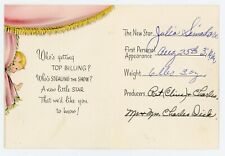 Who's getting
TOP BILLING?
Who's STEALING THE SHOW?
A new little STAR
That we'd like you
to know!
The New Star Julie
First Personal Aug 25th
Appearance
Weight 6 lbs 3 oz
Producers Charles
Mr & Mrs. Charles Dick